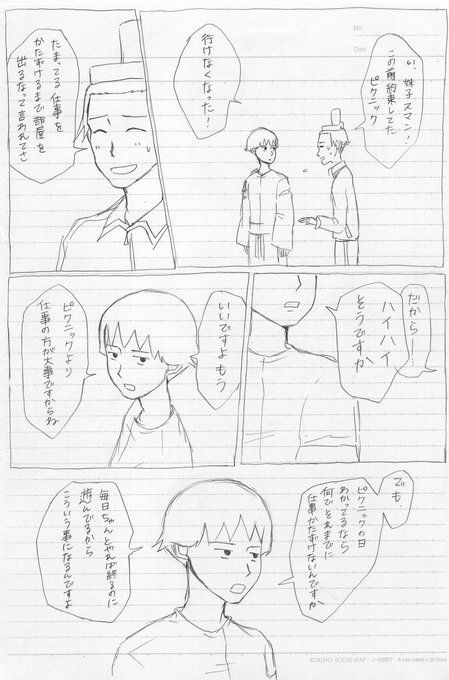 い、妹子スマン!
この前約束してた
ピクニック
行けなくなった!
たまってる仕事を
かたずけるまで部屋を
出るなって言われてさ
だからー…
ハイハイ
そうですか
いいですよ もう
ピクニックより
仕事の方が大事ですからね
でも、
ピクニックの日
わかってるなら
何でそれまでに
仕事かたずけないんですか
毎日ちゃんとやれば終るのに
遊んでるから
こういう事になるんですよ
No.
Date
KOKUYO LOOSE-LEAF
6 mm ruled x 36 lines